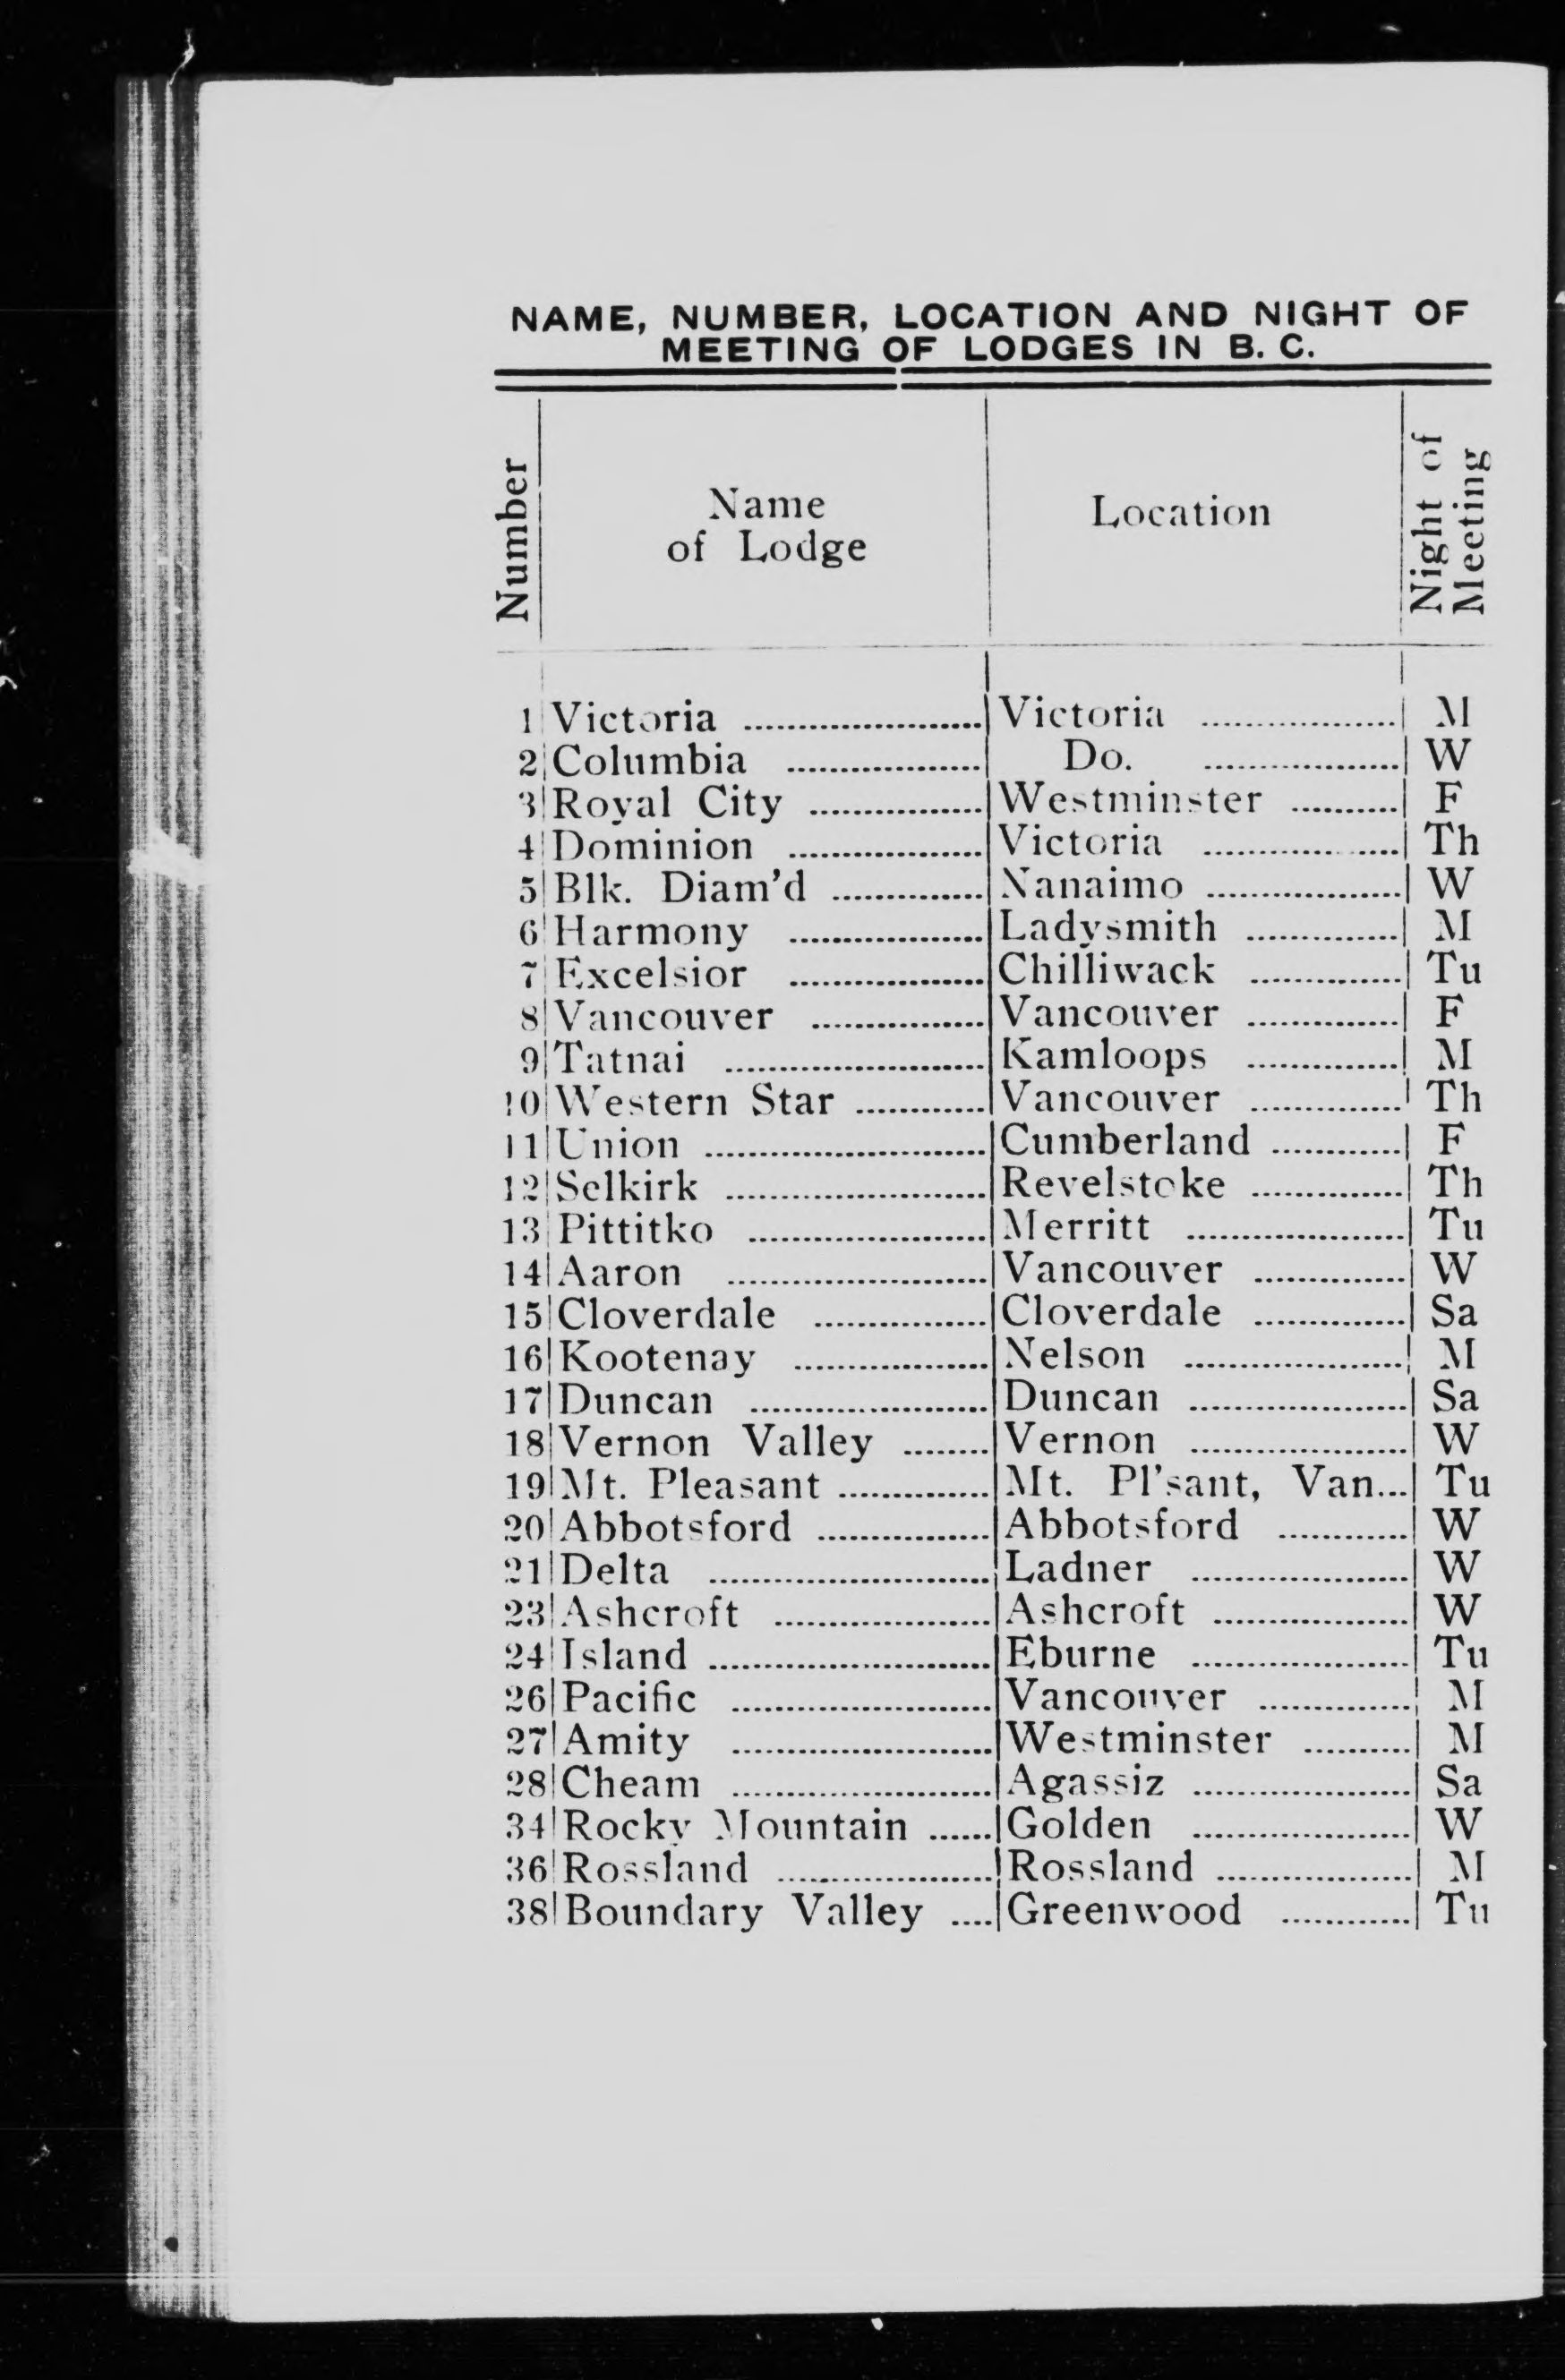 NAME, NUMBER, LOCATION AND NIGHT OF
MEETING OF LODGES IN B. C.
Number | Name of Lodge | Location | Night of Meeting
1 | Victoria | Victoria | M
2 | Columbia | Do. | W
3 | Royal City | Westminster | F
4 | Dominion | Victoria | Th
5 | Blk. Diam'd | Nanaimo | W
6 | Harmony | Ladysmith | M
7 | Excelsior | Chilliwack | Tu
8 | Vancouver | Vancouver | F
9 | Tatnai | Kamloops | M
10 | Western Star | Vancouver | Th
11 | Union | Cumberland | F
12 | Selkirk | Revelstoke | Th
13 | Pittitko | Merritt | Tu
14 | Aaron | Vancouver | W
15 | Cloverdale | Cloverdale | Sa
16 | Kootenay | Nelson | M
17 | Duncan | Duncan | Sa
18 | Vernon Valley | Vernon | W
19 | Mt. Pleasant | Mt. Pl'sant, Van... | Tu
20 | Abbotsford | Abbotsford | W
21 | Delta | Ladner | W
23 | Ashcroft | Ashcroft | W
24 | Island | Eburne | Tu
26 | Pacific | Vancouver | M
27 | Amity | Westminster | M
28 | Cheam | Agassiz | Sa
34 | Rocky Mountain | Golden | W
36 | Rossland | Rossland | M
38 | Boundary Valley | Greenwood | Tu